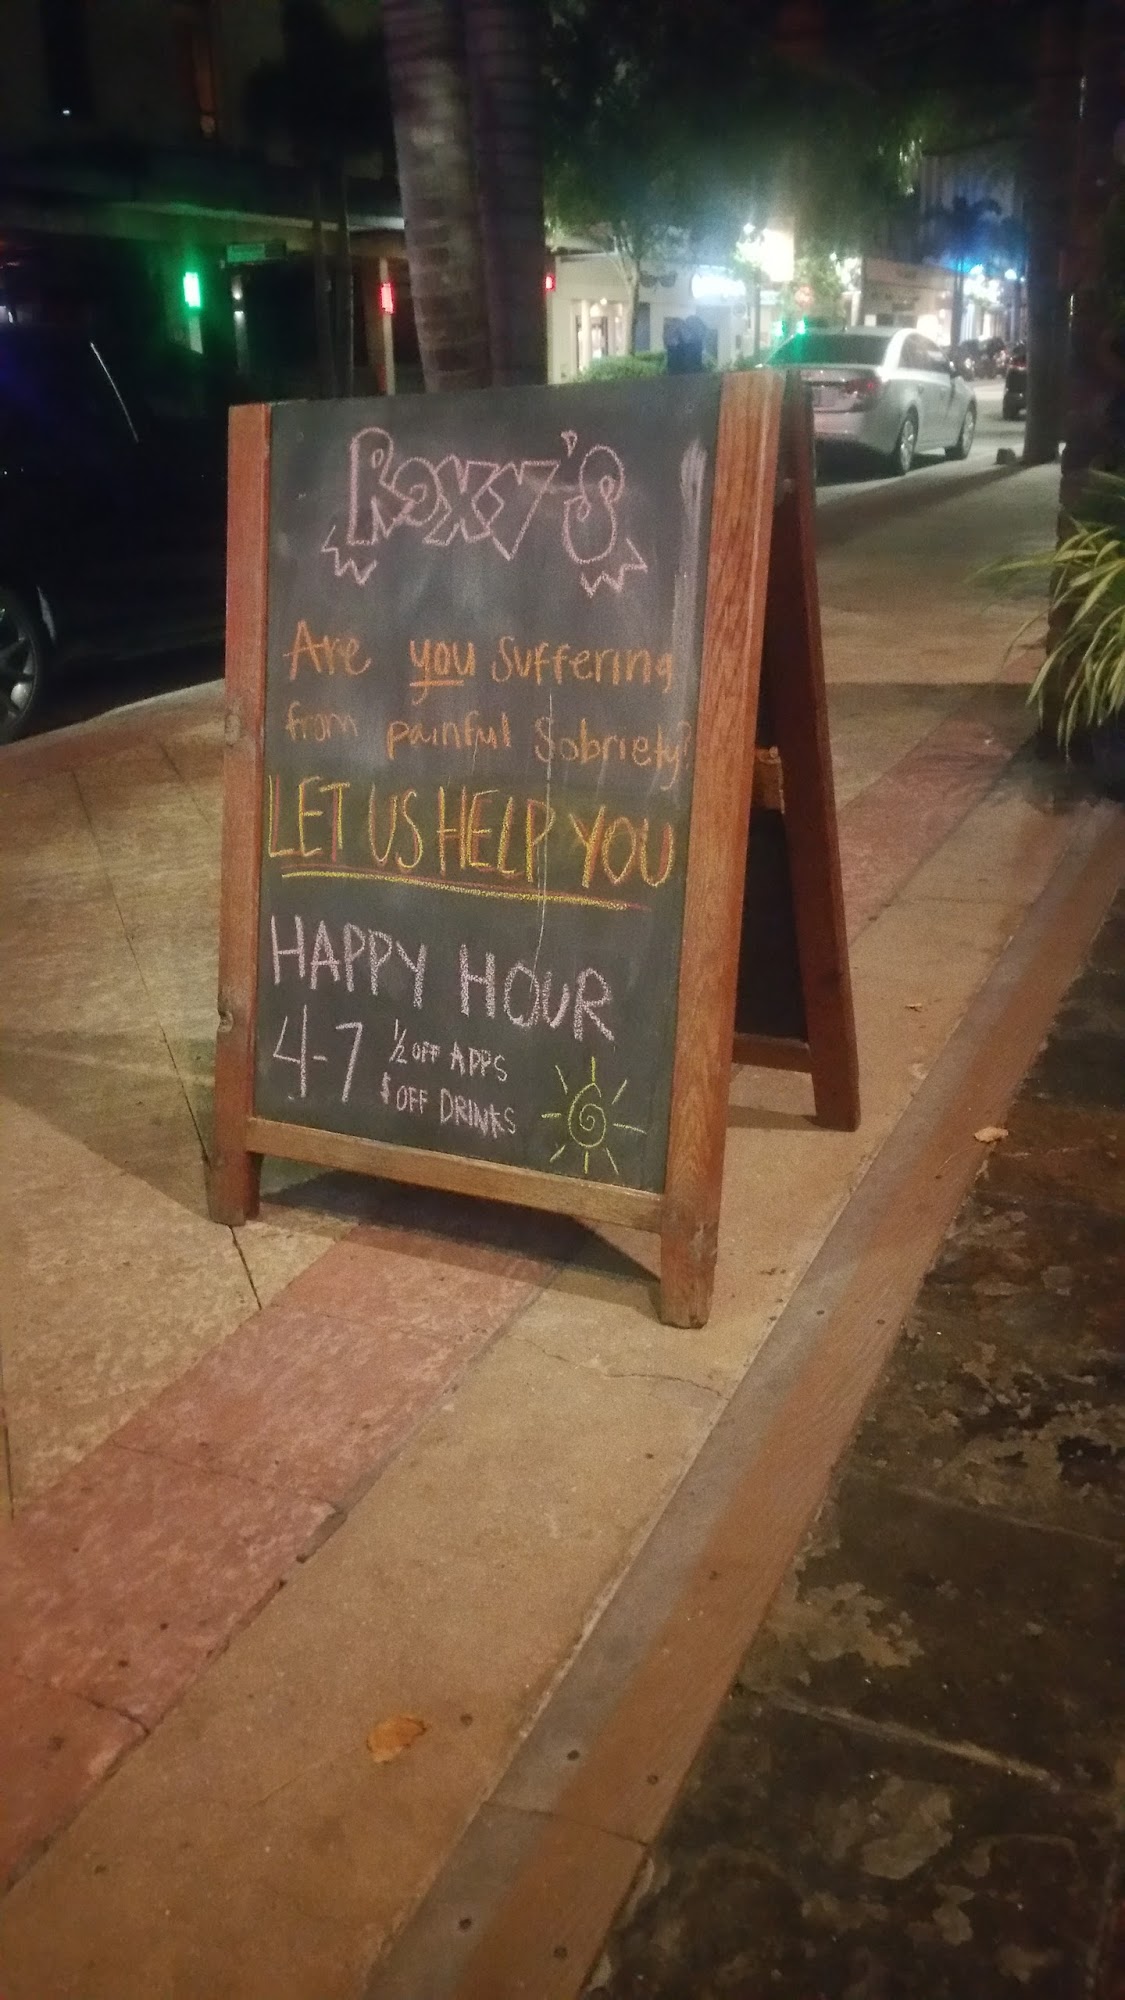 ROXY'S
Are you suffering
from painful Sobriety?
LET US HELP YOU
HAPPY HOUR
4-7 ½ OFF APPS
$ OFF DRINKS